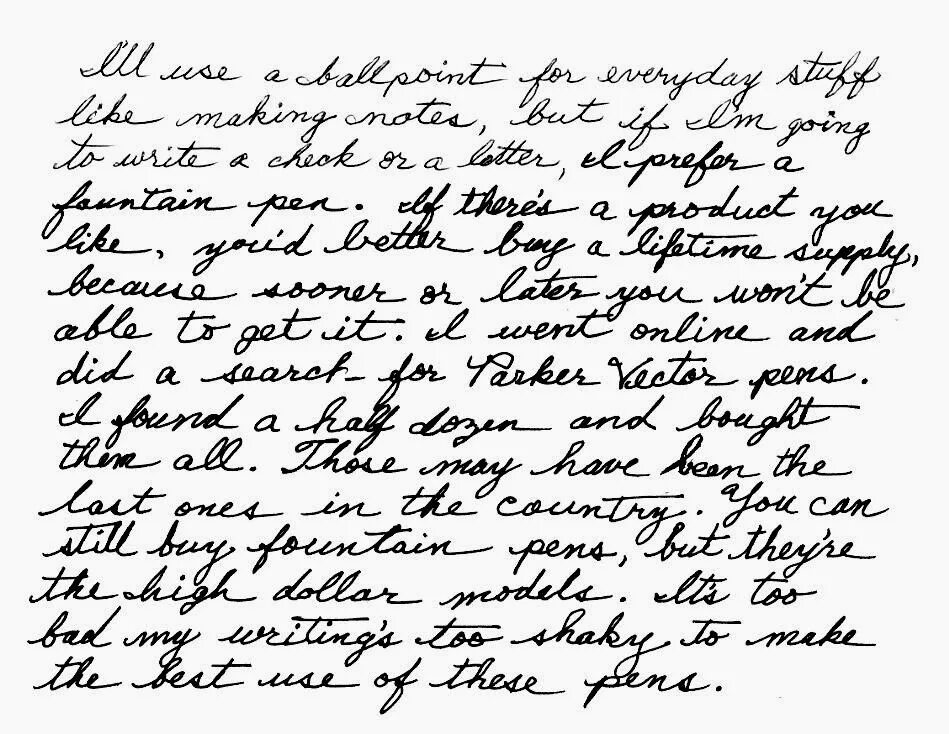 I'll use a ballpoint for everyday stuff
like making notes, but if I'm going
to write a check or a letter, I prefer a
fountain pen. If there's a product you
like, you'd better buy a lifetime supply,
because sooner or later you won't be
able to get it. I went online and
did a search for Parker Vector pens.
I found a half dozen and bought
them all. Those may have been the
last ones in the country. You can
still buy fountain pens, but they're
the high dollar models. It's too
bad my writing's too shaky to make
the best use of these pens.